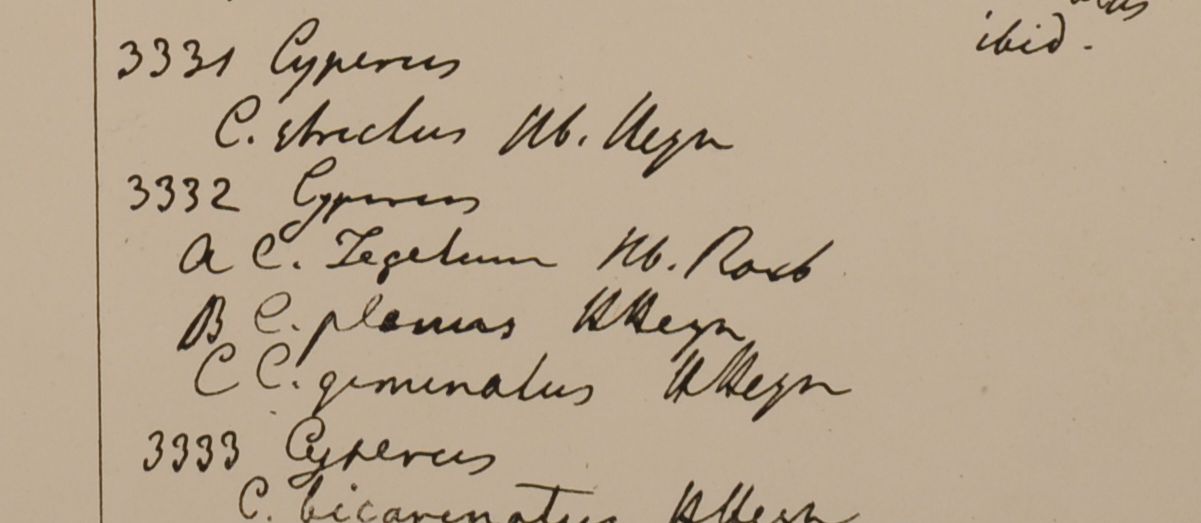 3331 Cyperus ibid.
C. strictus Hb. Heyn
3332 Cyperus
a C. Tegetum Hb. Roxb
B C. planus HHeyn
C C. geminatus HHeyn
3333 Cyperus
C. bicarinatus HHeyn